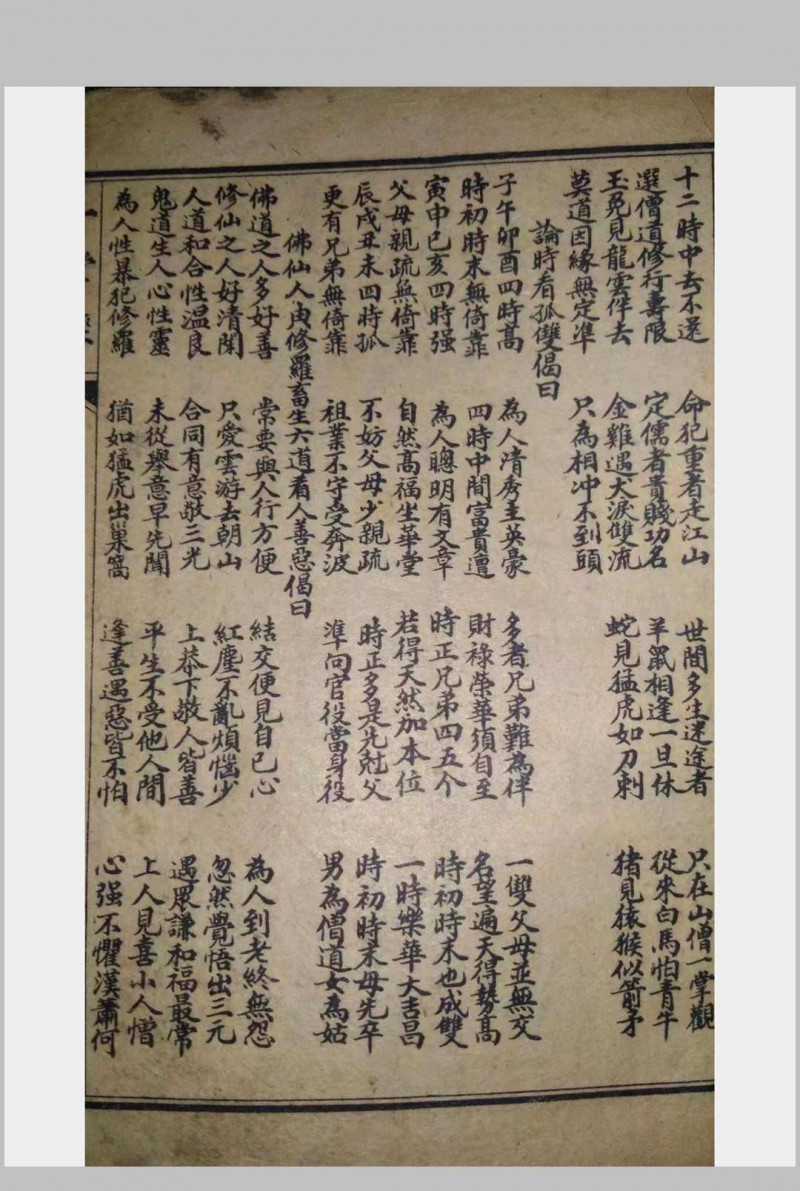 十二時中去不還　命犯重者走江山　世間多生迷途者　只在山僧一掌觀
選僧道修行壽限　定儒者貴賤功名　羊鼠相逢一旦休　從來白馬怕青牛
玉兎見龍雲伴去　金雞遇犬淚雙流　蛇見猛虎如刀刺　猪見猿猴似箭矛
莫道因緣無定準　只為相冲不到頭
論時看孤雙偈曰
子午卯酉四時髙　為人清秀主英豪　多者兄弟難為伴　一雙父母並無交
時初時末無倚靠　四時中間富貴遭　財祿榮華須自至　名望遍天得勢髙
寅申巳亥四時强　為人聰明有文章　時正兄弟四五个　時初時末也成雙
父母親疏無倚靠　自然髙福坐華堂　若得天然加本位　一時樂華大吉昌
辰戌丑未四時孤　不妨父母少親疏　時正多是先尅父　時初時末母先卒
更有兄弟無倚靠　祖業不守受奔波　準向官役當身役　男為僧道女為姑
佛仙人鬼修羅畜生六道看人善惡偈曰
佛道之人多好善　常要與人行方便　結交便見自己心　為人到老終無怨
修仙之人好清閑　只愛雲游去朝山　紅塵不亂煩惱少　忽然覺悟出三元
人道和合性溫良　合同有意敬三光　上恭下敬人皆善　遇眾謙和福最常
鬼道生人心性靈　未從舉意早先聞　平生不受他人間　上人見喜小人憎
為人性暴犯修羅　猶如猛虎出巢窩　逢善遇惡皆不怕　心强不懼漢蕭何